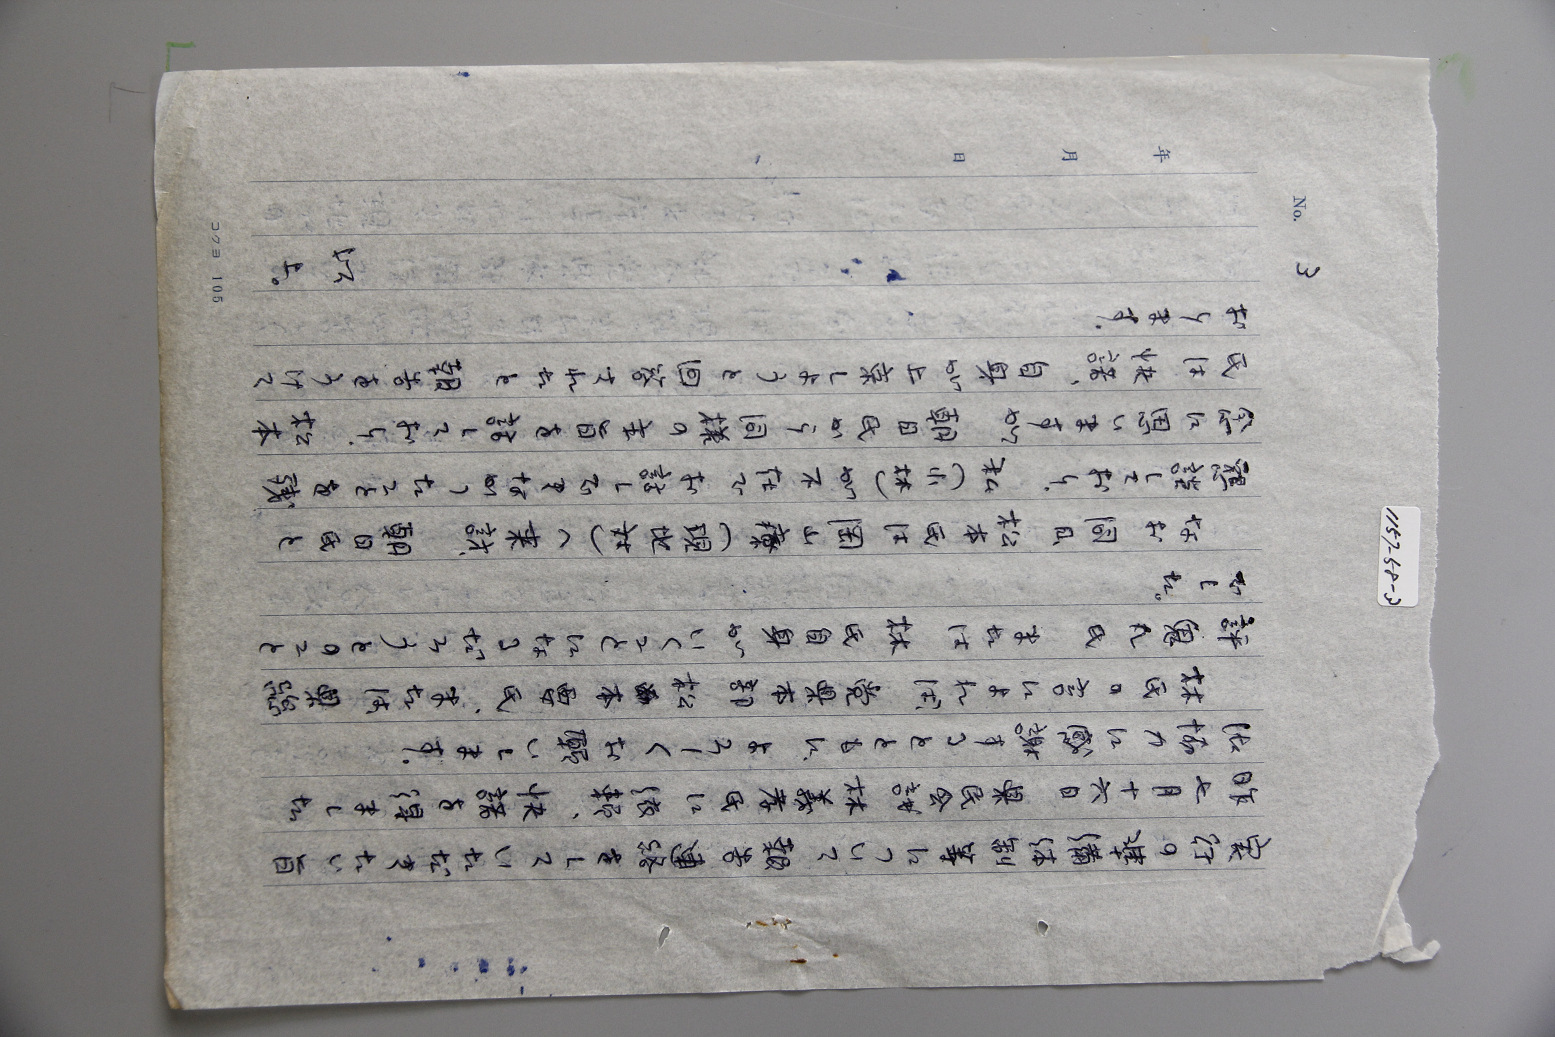 No. 3
年 月 日
実行の準備体制等について 報告連絡をしていただきたい旨
昨七月十六日 県民会議 林義孝氏に依頼、快諾を得ました
御協力に感謝するとともに、よろしくお願いします。
林氏の言によれば、党県本部 松本 氏、または 県総
評 氏 または 林氏自身が いくことになるだろうとのこと
でした。
なお 同日 松本氏は (現地対)へ 来訪、朝日氏と
懇談しており、私(小林)が不在でお話しできなかったことを残
念に思いますが 朝日氏から同様の主旨を話しており、松本
氏は快諾、自身が上京しようと回答されたと 報告をうけて
おります。
以上。
コクヨ 105
1157-58-3